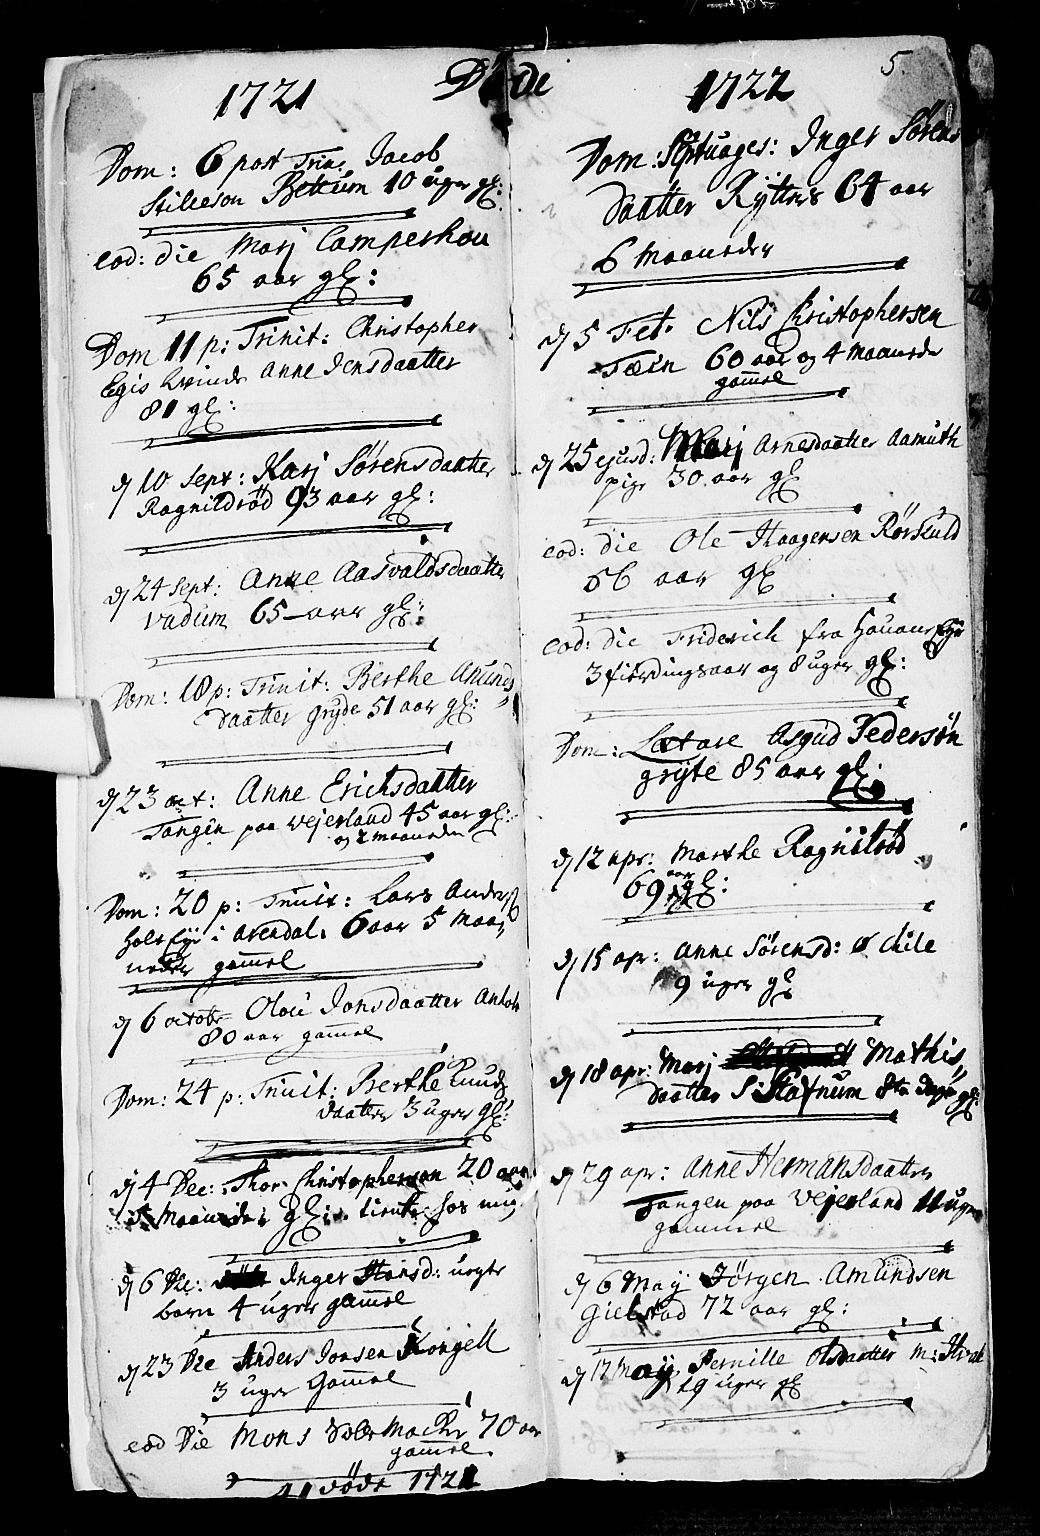 5.
Døde
1721
Dom: 6 post Trin: Jacob
Stillesøn Bettum 10 uger gl:
eod: die Marj Camperhou
65 aar gl:
Dom 11 p: Trinit: Christopher
Egis kvinde Anne Jensdaatter
81 gl:
d 10 Sept: Karj Sørensdaatter
Ragnildrød 93 aar gl:
d 24 Sept: Anne Aasvaldsdaatter
Vadum 65 aar gl:
Dom: 18 p: Trinit: Berthe Amunds
daatter gryde 51 aar gl:
d 23 oct: Anne Erichsdaatter
Tangen paa Vejerland 45 aar gl:
og 2 maaneder
Dom: 20 p: Trinit: Lars Anders
i Arendal. 6 aar 5 maa„
neder gammel
d 6 octobr Olou Jonsdaatter
80 aar gammel
Dom: 24 p: Trinit: Berthe Knuds
daatter 3 uger gl:
d 4 Dec: Thor Christophersøn 20 aar
maaneder gl: tiente hos mig
d 6 Dec: Inger Hansd: uegte
barn 4 uger gammel
d 23 Dec Anders Jonsen Kongell
3 uger Gamel
eod Die Mons 70 aar
gammel
døde 1721
1722
Dom: Septuages: Inger Sørens
daatter Rytters 64 aar
6 maaneder
d 5 Feb. Nils Christophersen
60 aar og 4 maaneder
gammel
d 25 ejusd: Marj Arnesdaatter Aamuth
pige 30 aar gl
eod: die Ole Haagensen Rørkuld
56 aar gl
eod: die Friderich fra
3 fierdingsaar og 8 uger gl:
Dom: Lætare Asgud Pedersøn
gryte 85 aar gl:
d 12 apr: Marthe Ragnilrød
69 aar gl:
d 15 apr: Anne Sørensd: Kile
9 uger gl
d 18 apr: Marj Mathis„
daatter 8te dage gl:
d 29 apr: Anne Hermansdaatter
Tangen paa Vejerland 11 uger
gammel
d 6 May Jørgen Amundsen
Gielstad 72 aar gl:
d 17 May Pernille Olsdaatter
19 uger gl